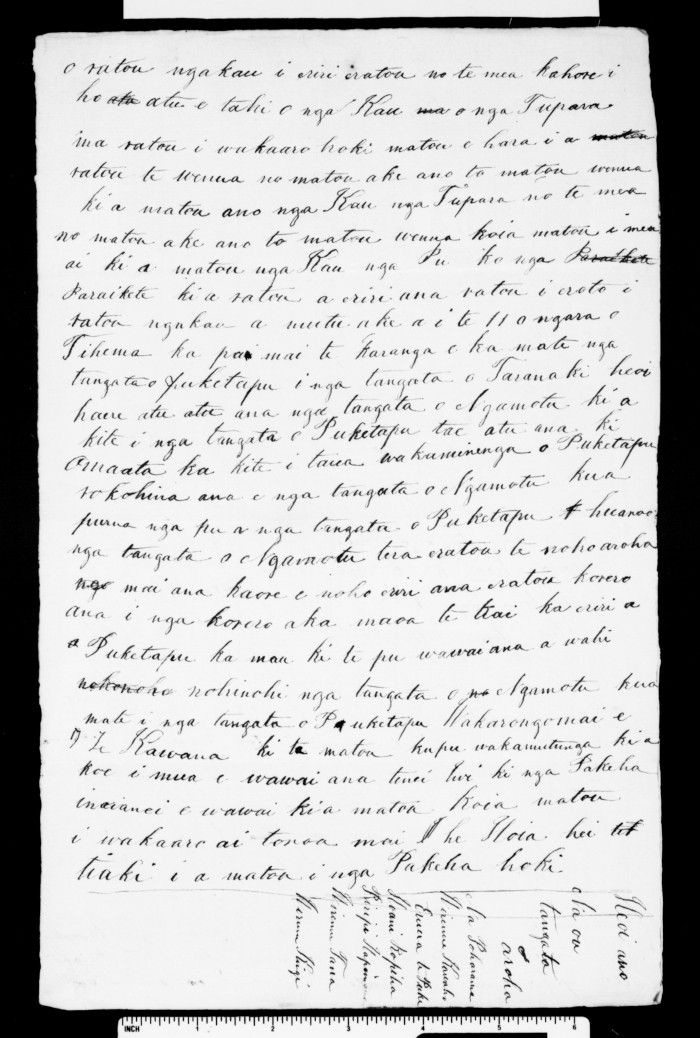 o ratou ngakau i eriri eratou no te mea kahore i
ho ata atu e tahi o nga Kau ma o nga Tupara
ma ratou i wakaaro hoki matou e hara i a matou
ratou te wenua no matou ake ano to matou wenua
ki a matou ano nga Kau nga Tupara no te mea
no matou ake ano to matou wenua koia matou i mea
ai ki a matou nga Kau nga Pu ko nga Paraikete
Paraikete ki a ratou a eriri ana ratou i eroto i
ratou ngakau a mutu ake a i te 11 o ngara o
Tihema ka pai mai te karanga e ka mate nga
tangata o Puketapu i nga tangata o Taranaki heoi
haere atu atu ana nga tangata o Ngamotu ki a
kite i nga tangata o Puketapu tae atu ana ki
Omaata ka kite i taua wakaminenga o Puketapu
rokohina ana e nga tangata o Ngamotu kua
purua nga pu a nga tangata o Puketapu huanoa
nga tangata o Ngamotu tera eratou te noho aroha
nga mai ana kaore e noho eriri ana eratou korero
ana i nga korero aka maoa te kai ka eriri a
a Puketapu ka mau ki te pu wawai ana a wahi
nohonoho nohinohi nga tangata o no Ngamotu kua
mate i nga tangata o Puketapu Wakarongomai e
Te Kawana ki ta matou kupu wakamutunga ki a
koe i mua e wawai ana tenei Iwi ki nga Pakeha
inaianei e wawai ki a matou koia matou
i wakaaro ai tonoa mai he Hoia hei
tiaki i a matou i nga Pakeha hoki
Heoi ano
Na ou
tangata
aroha
Na Poharama
Wiremu
Emera te Puke
Hoani Ropiha
Wiremu Tana